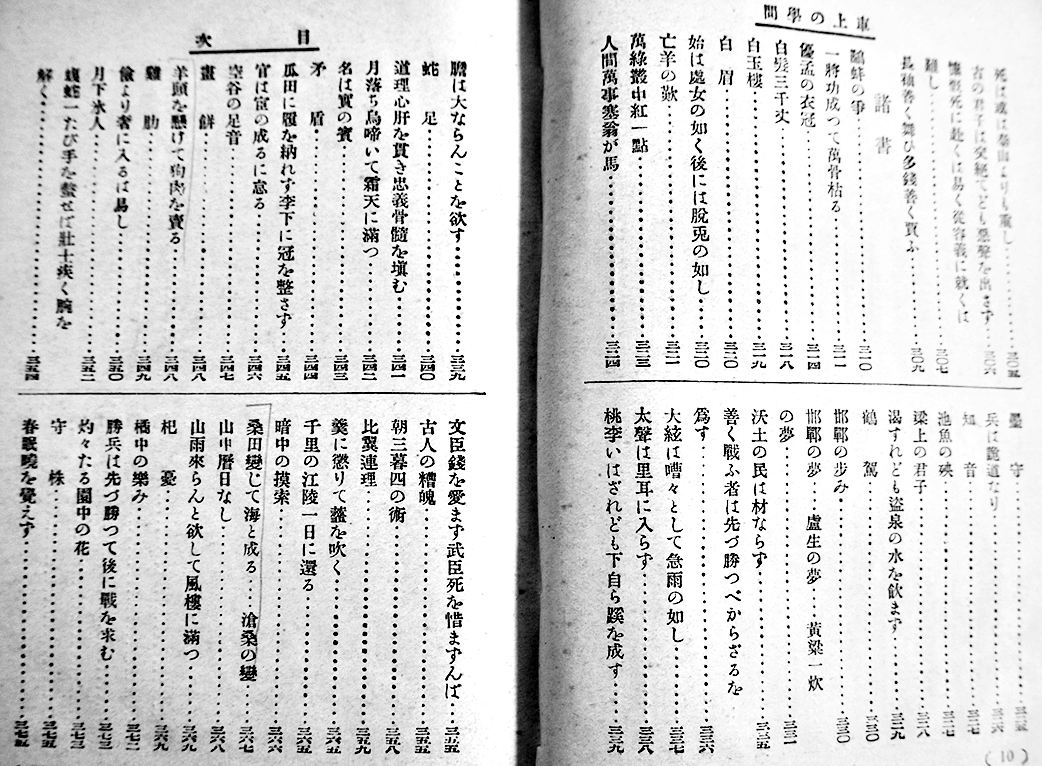 車上の學問
死は或は泰山よりも重し……三〇五
古の君子は交絶てども惡聲を出さず…三〇六
慷慨死に赴くは易く從容義に就くは
難し……三〇七
長袖善く舞ひ多錢善く買ふ……三〇九
諸書
鷸蚌の爭……三一〇
一將功成つて萬骨枯る……三一一
優孟の衣冠……三一四
白髮三千丈……三一八
白玉樓……三一九
白眉……三二〇
始は處女の如く後には脫兎の如し……三二〇
亡羊の歎……三二一
萬綠叢中紅一點……三二三
人間萬事塞翁が馬……三二四
墨守……三二五
兵は詭道なり……三二六
知音……三二七
池魚の殃……三二七
梁上の君子……三二八
渴すれども盜泉の水を飮まず……三二九
鶴駕……三三〇
邯鄲の步み……三三〇
邯鄲の夢…盧生の夢…黃粱一炊
の夢……三三一
沃土の民は材ならず……三三五
善く戰ふ者は先づ勝つべからざるを
爲す……三三六
大絃は嘈々として急雨の如し……三三七
太聲は里耳に入らず……三三八
桃李いはざれども下自ら蹊を成す……三三九
(10)
目次
膽は大ならんことを欲す……三三九
蛇足……三四〇
道理心肝を貫き忠義骨髓を塡む……三四一
月落ち烏啼いて霜天に滿つ……三四二
名は實の賓……三四三
矛盾……三四四
瓜田に履を納れず李下に冠を整さず……三四五
官は宦の成るに怠る……三四六
空谷の足音……三四七
畫餠……三四八
羊頭を懸けて狗肉を賣る……三四八
雞肋……三四九
儉より奢に入るは易し……三五〇
月下氷人……三五二
蝮蛇一たび手を螫せば壯士疾く腕を
解く……三五四
文臣錢を愛まず武臣死を惜まずんば…三五五
古人の糟魄……三五五
朝三暮四の術……三五八
比翼連理……三五九
羹に懲りて虀を吹く……三六五
千里の江陵一日に還る……三六五
暗中の摸索……三六六
桑田變じて海と成る…滄桑の變……三六六
山中曆日なし……三六八
山雨來らんと欲して風樓に滿つ……三六九
杞憂……三六九
橘中の樂み……三七二
勝兵は先づ勝つて後に戰を求む……三七三
灼々たる園中の花……三七三
守株……三七五
春眠曉を覺えず……三七五